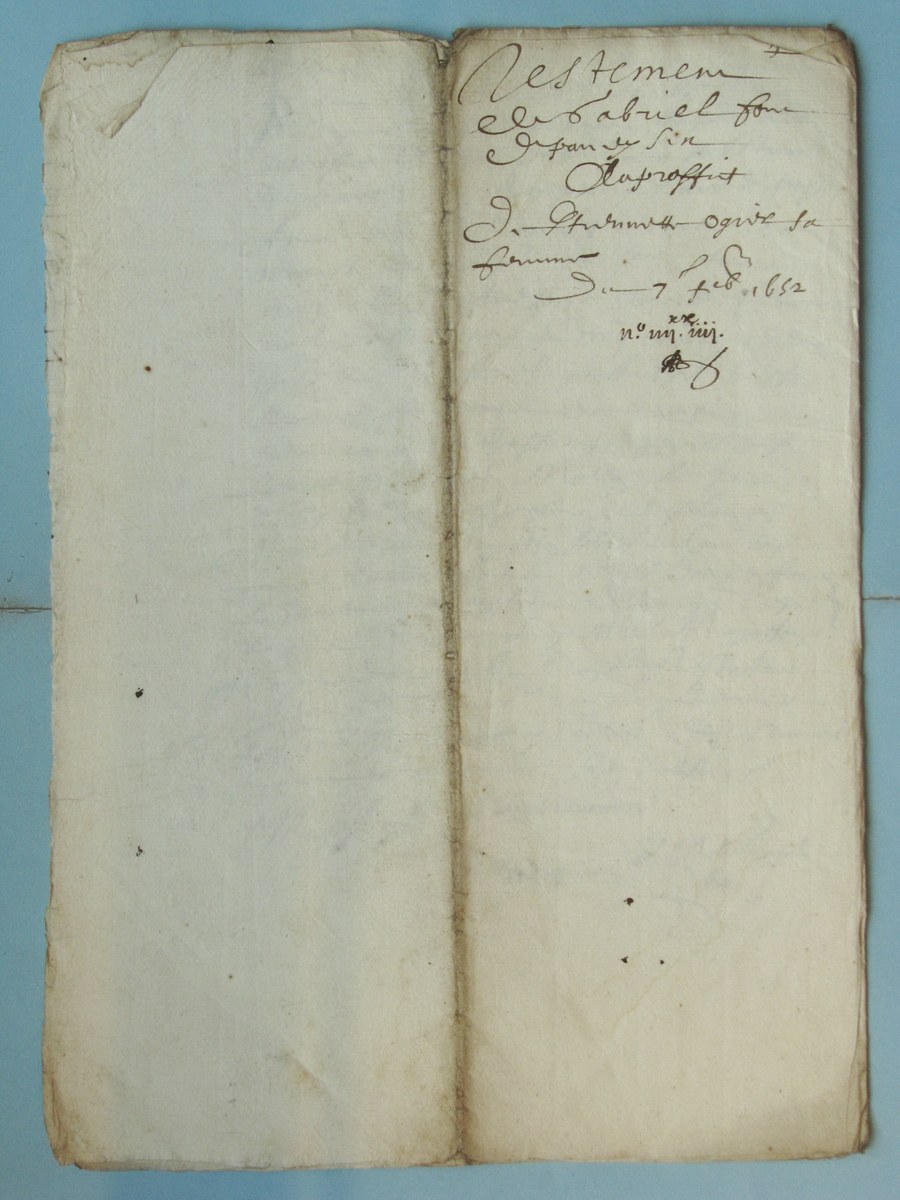 Testement
de Gabriel fon
de
Au proffict
De Ettiennette ogier sa
femme
Du 7 feb 1652
n.º iiij.xx iiij.